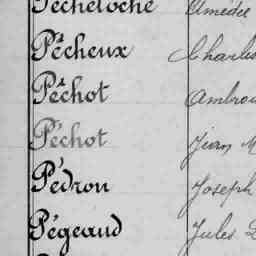 Pécheloche Amédée
Pêcheux Charles
Pêchot
Péchot Jean M
Pédron Joseph
Pégeaud Jules